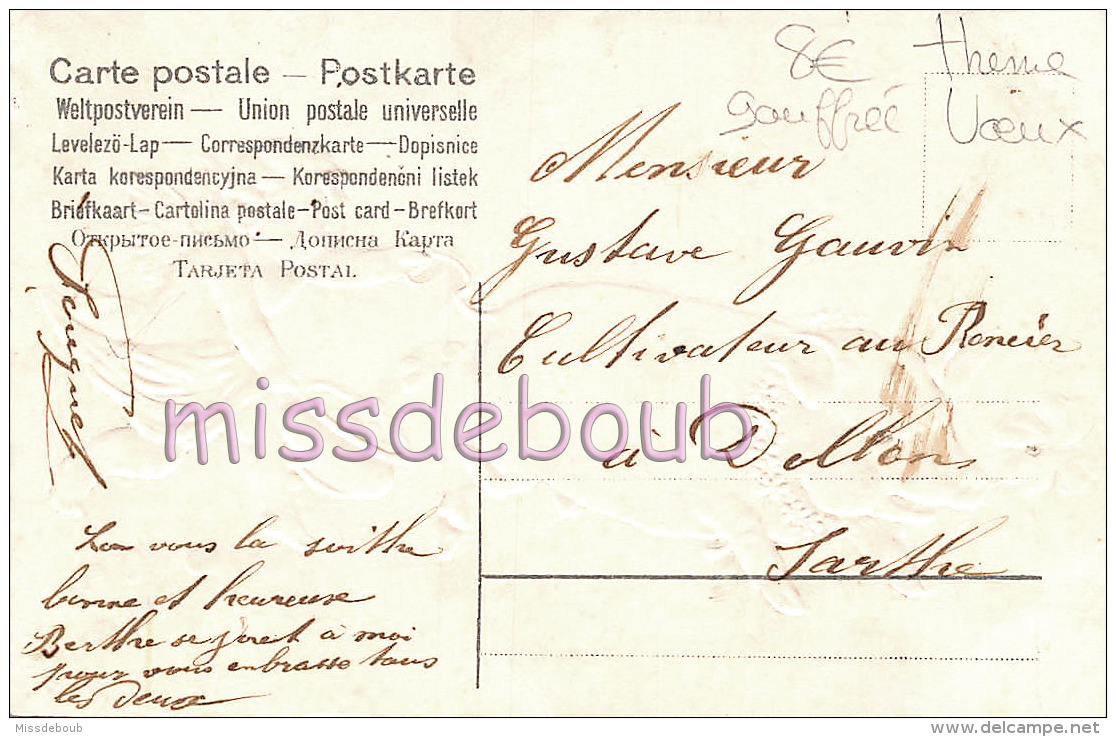 8€ thème
gauffrée Voeux
Carte postale — Postkarte
Weltpostverein — Union postale universelle
Levelezö-Lap — Correspondenzkarte — Dopisnice
Karta korespondencyjna — Korespondenční listek
Briefkaart - Cartolina postale - Post card - Brefkort
Открытое-письмо — Дописна Карта
Tarjeta Postal
Monsieur
Gustave Gauvin
Cultivateur au
à Dollon
Sarthe
missdeboub
vous la soithe
bonne et heureuse
Berthe se joret à moi
pour vous enbrasse tous
les deux
Missdeboub
www.delcampe.net